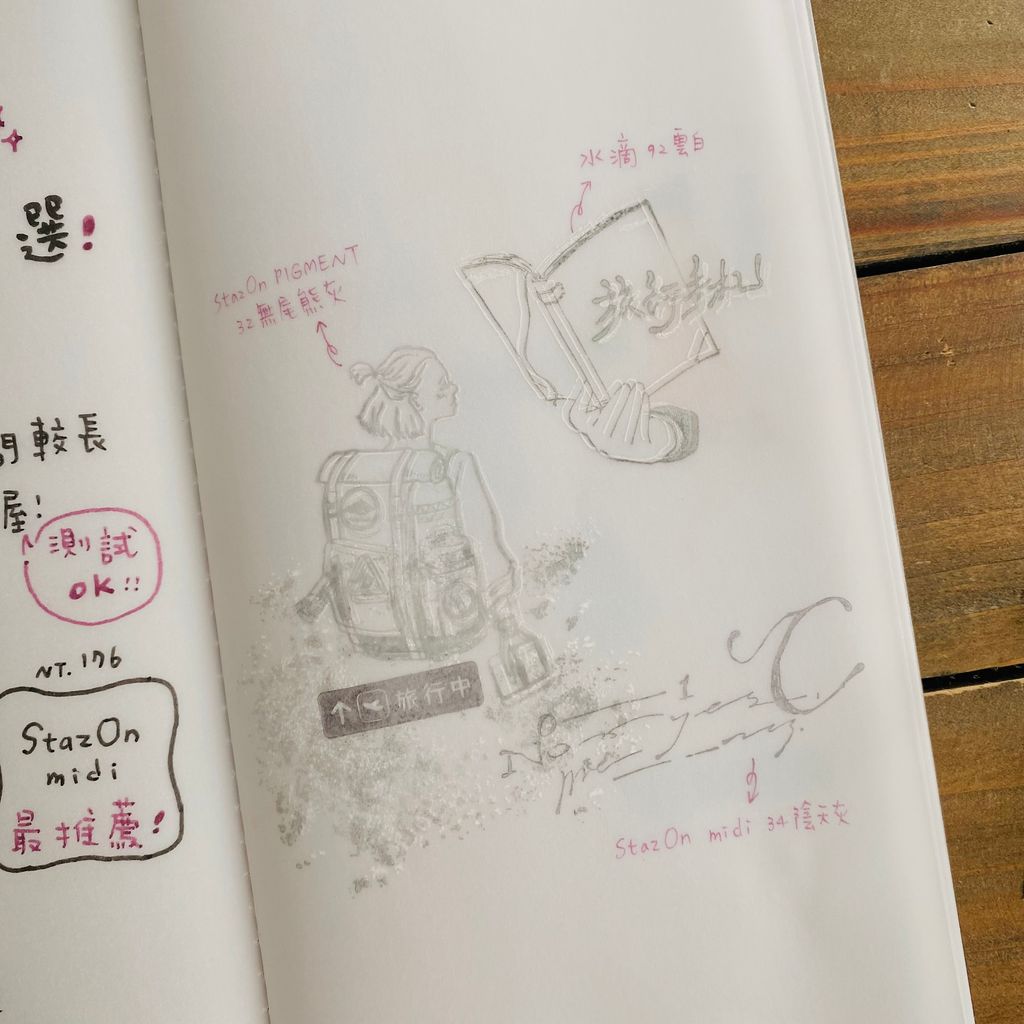 選!
較長
屋!
測試
OK!!
NT. 176
StazOn
midi
最推薦!
水滴 92雲白
StazOn PIGMENT
32無尾熊灰
旅行手札
↑ 旅行中
StazOn midi 34陰天灰